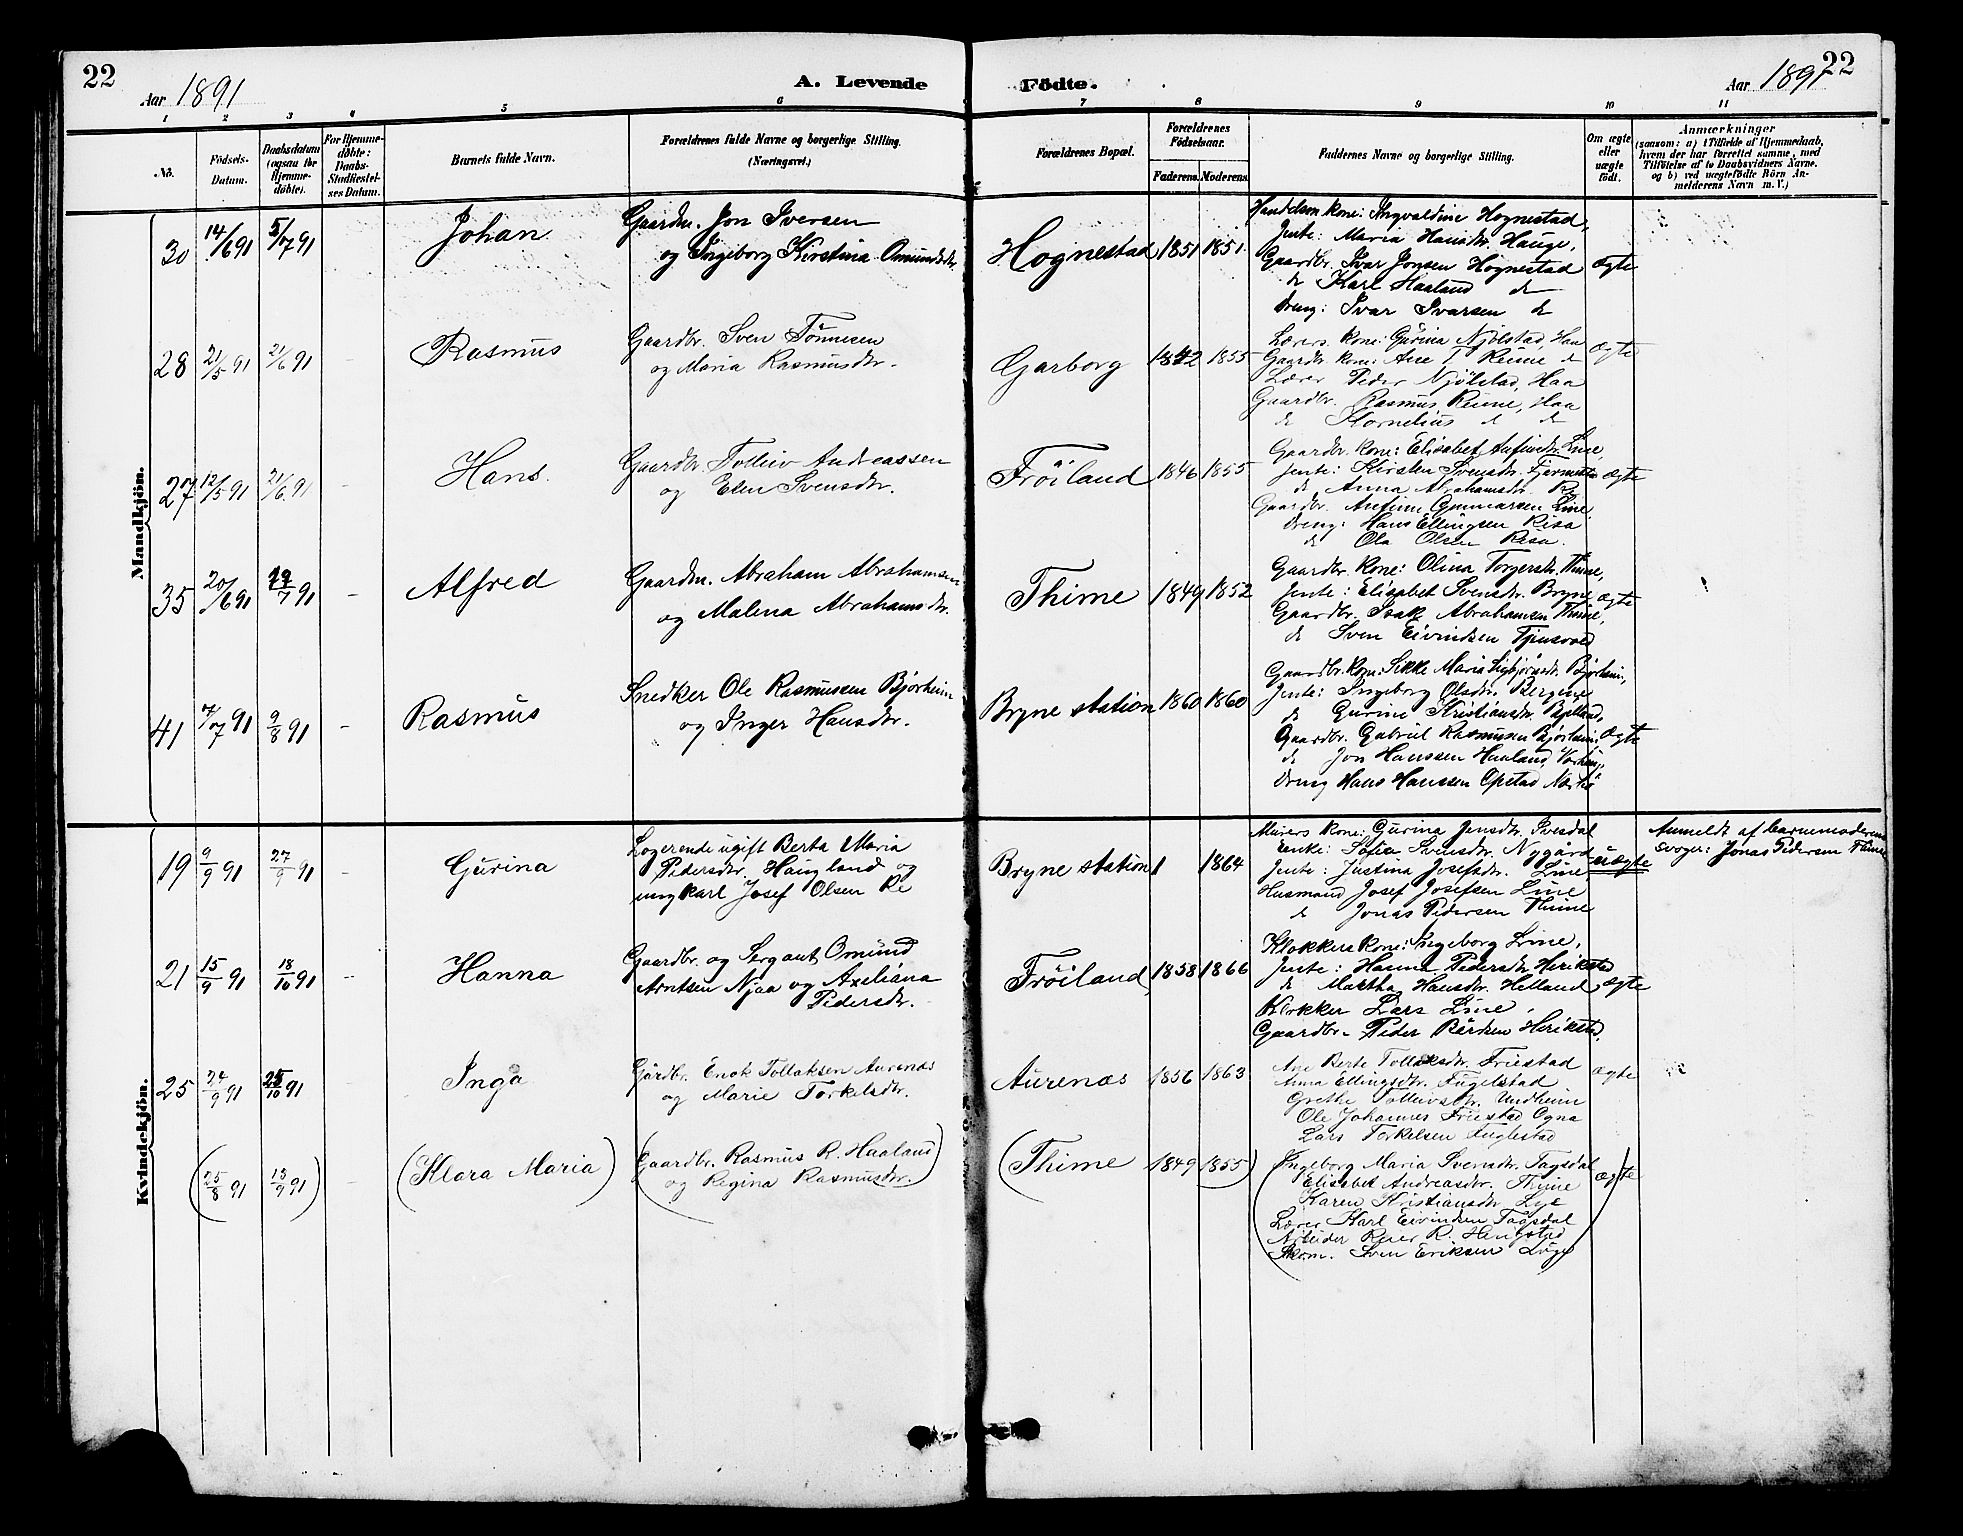 22
Aar 1891
A. Levende
Födte.
Aar 1891
22
1 2 3 4 5 6 7 8 9 10 11
No.
Födsels-
Datum.
Daabsdatum
(ogsaa for
Hjemme-
döbte).
For Hjemme-
döbte:
Daabs-
Stadfæstel-
ses Datum.
Barnets fulde Navn.
Forældrenes fulde Navne og borgerlige Stilling.
(Næringsvei.)
Forældrenes Bopæl.
Forældrenes
Födselsaar.
Faderens. Moderens.
Faddernes Navne og borgerlige Stilling.
Om ægte
eller
uægte
födt.
Anmærkninger
(saasom: a) i Tilfælde af Hjemmedaab,
hvem der har forrettet samme, med
Tilföielse af to Daabsvidners Navne,
og b) ved uægtefödte Börn An-
melderens Navn m. V.)
Mandkjön.
30 14/6 91 5/7 91 Johan
Gaardm. Jon Iversen
og Ingeborg Kirstina Omundsdtr
Hognestad 1851 1851
Handelsm. kone: Ingvaldine Hognestad,
Jente: Maria Hansdtr. Hauge,
Gaardbr. Ivar Jonsen Hognestad
do Karl Haaland do
Dreng: Ivar Ivarsen do
ægte
28 21/5 91 21/6 91 Rasmus
Gaardbr. Sven Tönnesen
og Maria Rasmusdtr.
Garborg 1842 1855
Lærers kone: Gurina Njölstad, Haa
Gaardbr. kone: Ane T. Reime do
Lærer Peder Njölstad, Haa
Gaardbr. Rasmus Reime, Haa
do Kornelius do do
ægte
27 12/5 91 21/6 91 Hans.
Gaardbr. Tolleiv Andreassen
og Elen Svensdtr.
Fröiland 1846 1855
Gaardbr. kone: Elisabet Anfindtr. Line,
Jente: Kirsten Svensdtr.
do Anna Abrahamsdtr. Re
Gaardbr. Anfinn Gunnarsen Line,
Dreng: Hans Ellingsen Risa
do Ola Olsen Risa.
ægte
35 20/6 91 /7 91 Alfred
Gaardm. Abraham Abrahamsen
og Malena Abrahamsdtr.
Thime 1849 1852
Gaardbr. kone: Olina Torgersdtr. Thime,
Jente: Elisabet Svensdtr. Bryne
Gaardbr. Isak Abrahamsen Thime,
do Sven Eivindsen Tjensvold
ægte
41 7/7 91 9/8 91 Rasmus
Snedker Ole Rasmussen Bjorheim
og Inger Hansdtr.
Bryne station 1860 1860
Gaardbr. kone: Sikke Maria Sigbjörnsdtr. Björheim,
Jente: Ingeborg Olsdtr. Bergine
do Gurine Kristiansdtr. Bjelland,
Gaardbr. Gabriel Rasmussen Björheim
do Jon Hanssen Haaland, Varhaug,
Dreng Hans Hanssen Opstad Nærbö
ægte
Kvindekjön.
19 9/9 91 27/9 91 Gurina
Logerende ugift Berta Maria
Pedersdtr. Haugland og
ungkarl Josef Olsen Re
Bryne station 1864
Murers kone: Gurina Jensdtr. Ivesdal
Enke: Sofie Svensdtr. Nygård
Jente: Justina Josefsdtr. Line
Husmand Josef Josefsen Line
do Jonas Pedersen Thime
uægte
Anmeldt af barnemoderens
svoger: Jonas Pedersen Thime
21 15/9 91 18/10 91 Hanna
Gaardbr. og Sergant Omund
Arntsen Njaa og Axeliana
Pedersdtr.
Fröiland 1858 1866
Klokkers kone: Ingeborg Line,
Jente: Hanna Pedersdtr Herikstad
do Martha Hansdtr. Helland
Klokker Lars Line,
Gaardbr. Peder Bårdsen Herikstad,
ægte
25 24/9 91 25/10 91 Inga
Gårdbr. Enok Tollaksen Aurenæs
og Marie Torkelsdtr.
Aurenæs 1856 1863
Ane Berte Tollaksdtr. Friestad
Anna Ellingsdtr. Fuglestad
Grethe Tolleivsdtr. Undheim
Ole Johannes Friestad Ogna
Lars Torkelsen Fuglestad
ægte
(25/8 91 13/9 91) (Klara Maria)
(Gaardbr. Rasmus R. Haaland)
og Regina Rasmusdtr.
(Thime 1849 1855)
Ingeborg Maria Svensdtr. Tagsdal
Elisabet Andreasdtr. Thime
Karen Kristiansdtr Lye
Lærer Karl Eivindsen Tagsdal
Arbeider Reier R. Haugstad
Skom. Sven Eriksen Lye
ægte